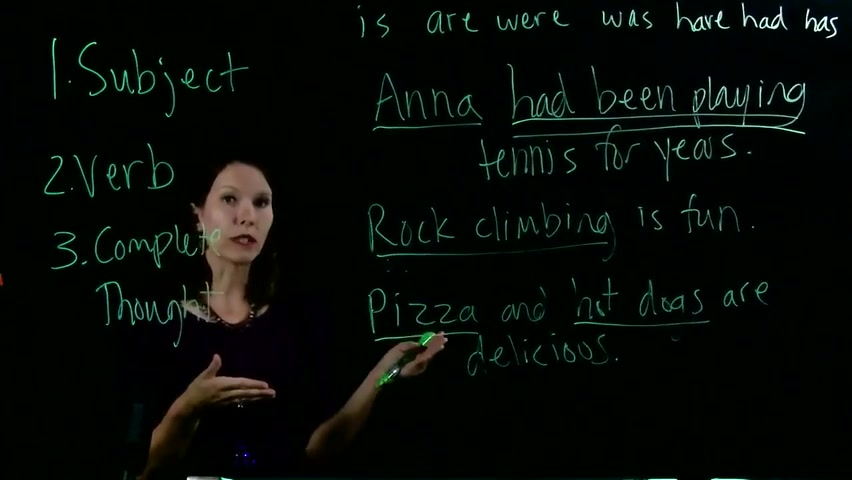 is are were was have had has
1. Subject
2. Verb
3. Complete
Thought
Anna had been playing
tennis for years.
Rock climbing is fun.
Pizza and hot dogs are
delicious.